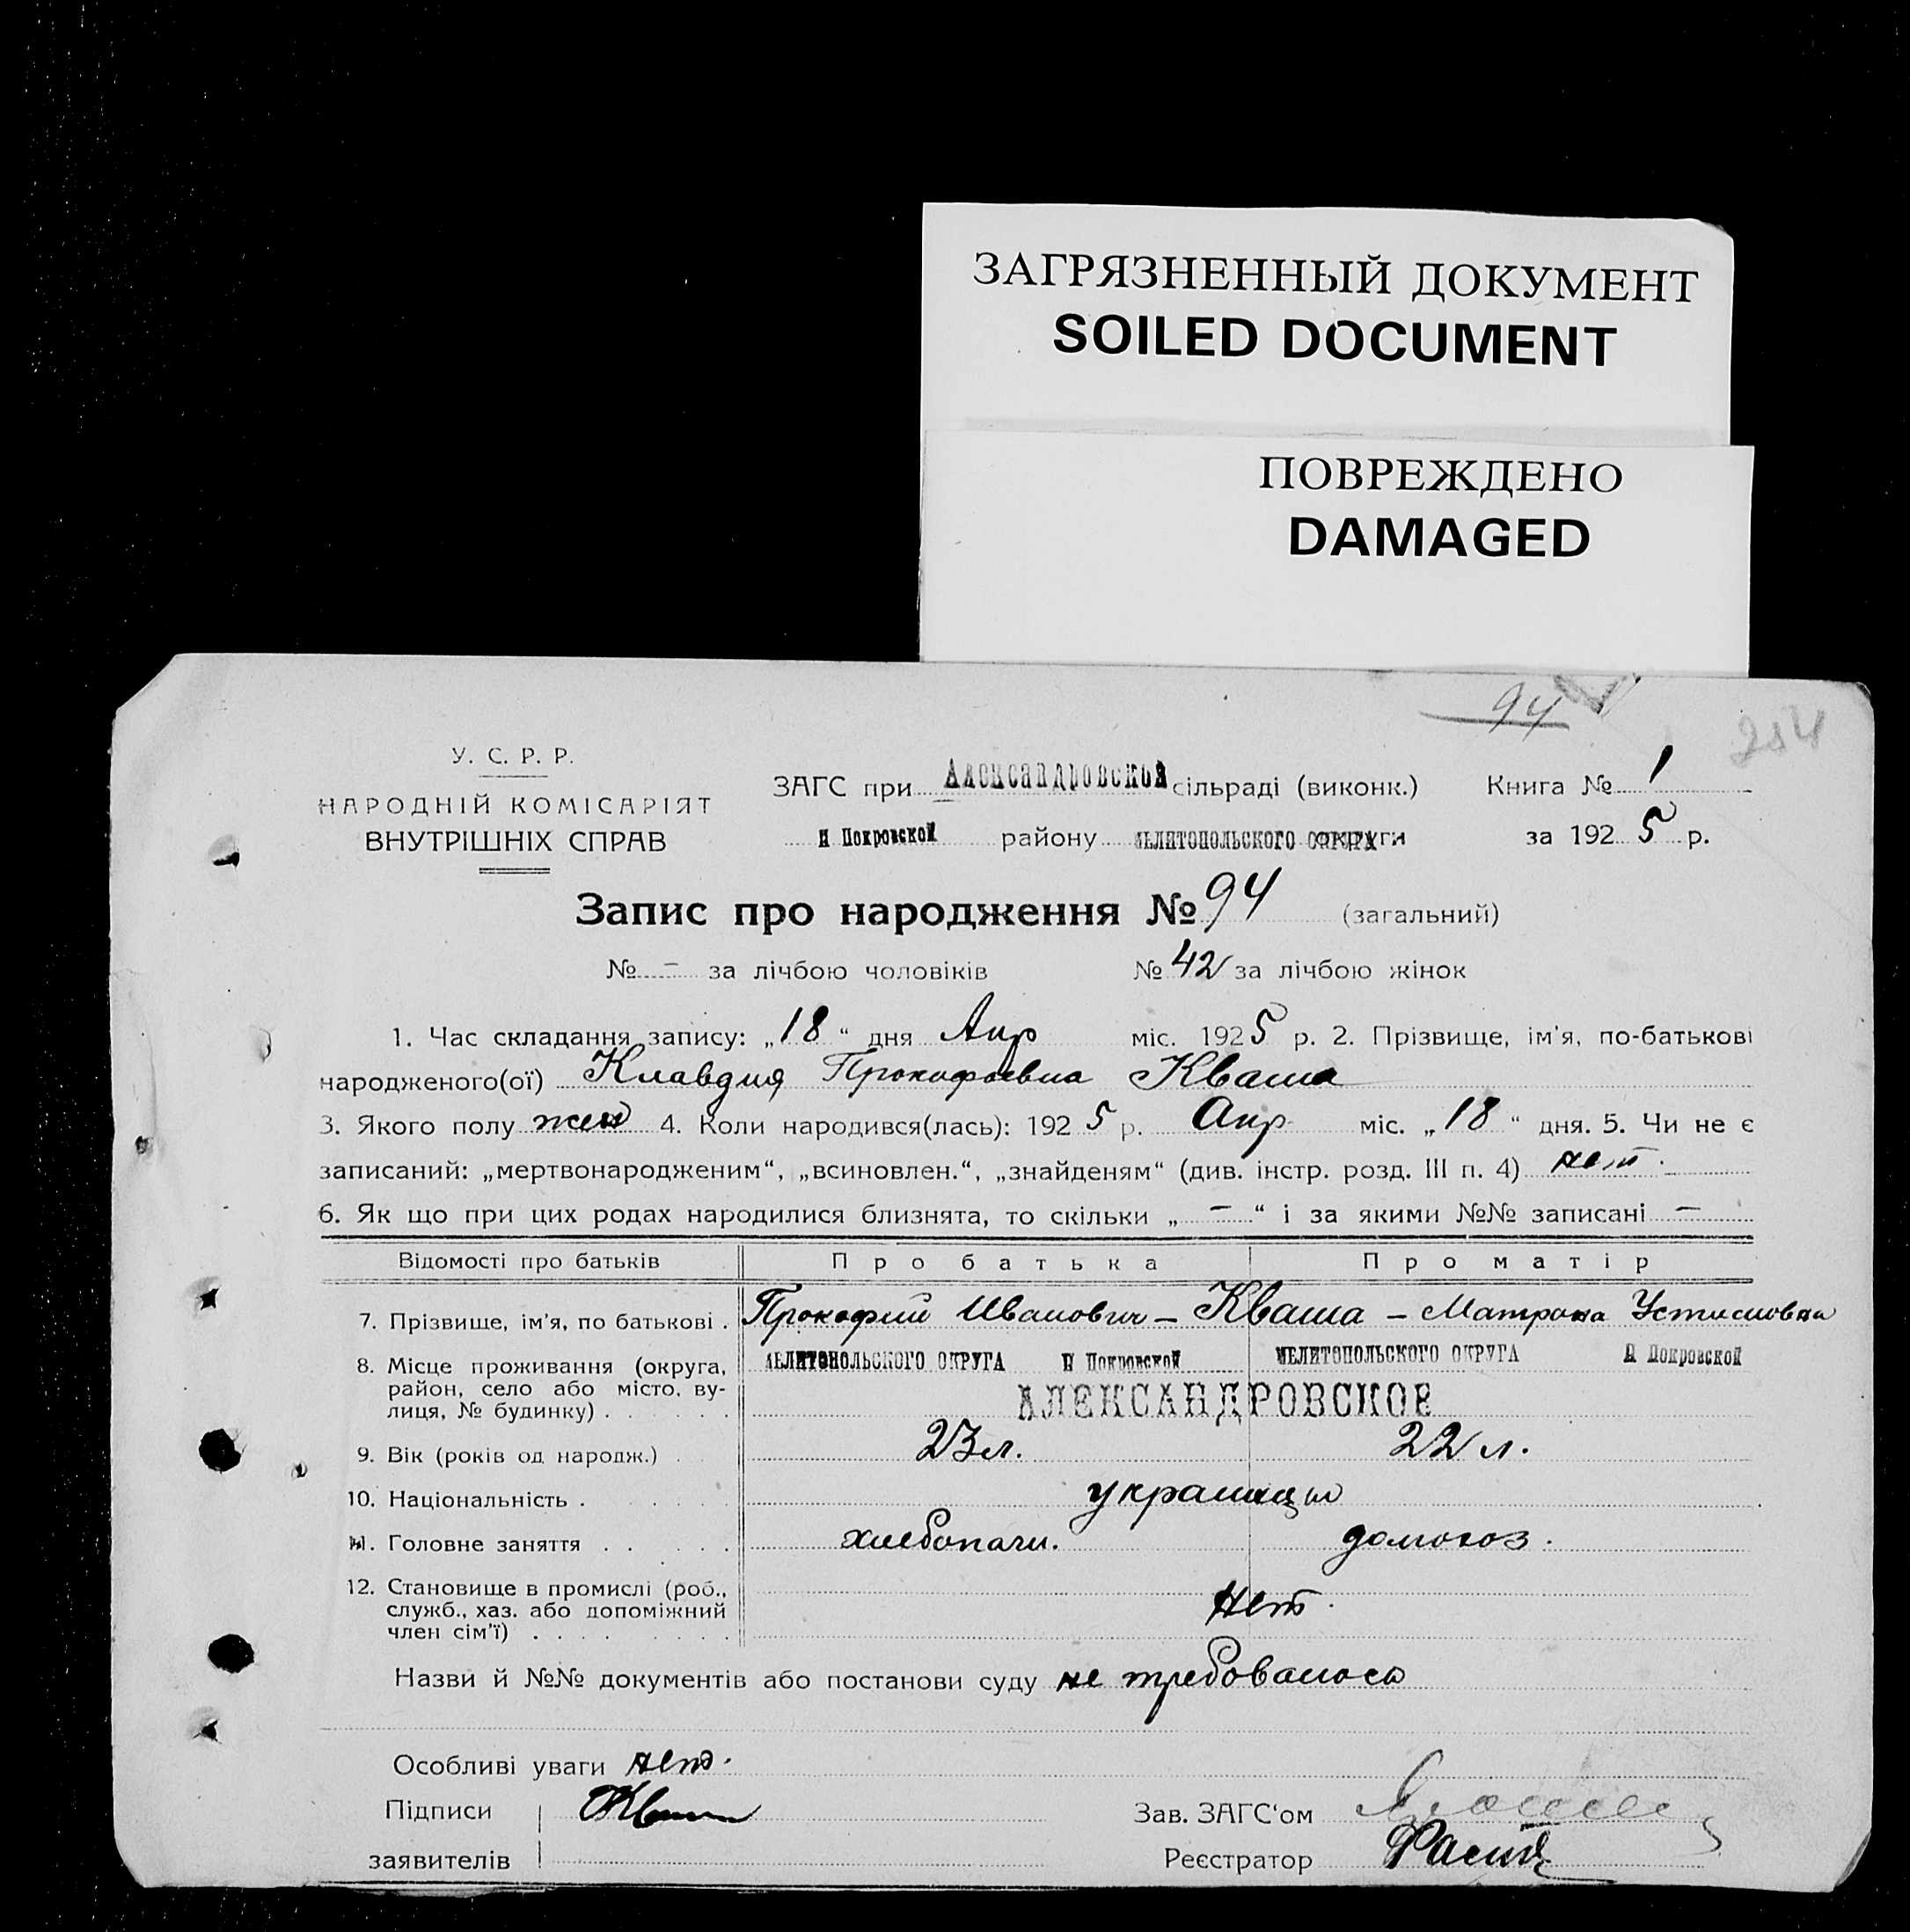 ЗАГРЯЗНЕННЫЙ ДОКУМЕНТ
SOILED DOCUMENT
ПОВРЕЖДЕНО
DAMAGED
94
У. С. Р. Р.
НАРОДНІЙ КОМІСАРІЯТ
ВНУТРІШНІХ СПРАВ
ЗАГС при Александровской сільраді (виконк.) Книга № 1
Н Покровской району МЕЛИТОПОЛЬСКОГО ОКРУГА округи за 1925 р.
Запис про народження № 94 (загальний)
№ – за лічбою чоловіків № 42 за лічбою жінок
1. Час складання запису: „18“ дня Апр міс. 1925 р. 2. Прізвище, ім'я, по-батькові
народженого(ої) Клавдия Прокофьевна Кваша
3. Якого полу жен 4. Коли народився(лась): 1925 р. Апр міс. „18“ дня. 5. Чи не є
записаний: „мертвонародженим“, „всиновлен.“, „знайденям“ (див. інстр. розд. III п. 4) нет.
6. Як що при цих родах народилися близнята, то скільки „–“ і за якими №№ записані –
Відомості про батьків Про батька Про матір
7. Прізвище, ім'я, по батькові . Прокофий Иванович – Кваша – Матрона Устиновна
8. Місце проживання (округа, район, село або місто, вулиця, № будинку) . МЕЛИТОПОЛЬСКОГО ОКРУГА Н Покровской МЕЛИТОПОЛЬСКОГО ОКРУГА Н Покровской
АЛЕКСАНДРОВСКОЕ
9. Вік (років од народж.) . 23 л. 22 л.
10. Національність . украинцы
11. Головне заняття . хлебопаш. домохоз.
12. Становище в промислі (роб., служб., хаз. або допоміжний член сім'ї) . Нет.
Назви й №№ документів або постанови суду не требовалось
Особливі уваги нет.
Підписи Зав. ЗАГС'ом
заявителів Реєстратор